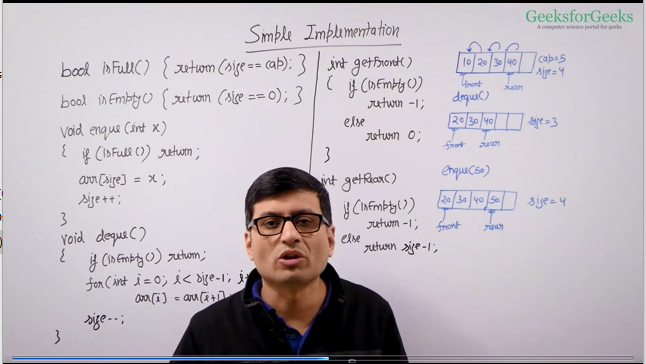 GeeksforGeeks
A computer science portal for geeks
Simple Implementation
bool isFull() { return (size == cap); }
bool isEmpty() { return (size == 0); }
void enque (int x)
{ if (isFull()) return;
arr[size] = x;
size++;
}
void deque()
{ if (isEmpty()) return;
for (int i=0; i < size-1; i+
arr[i] = arr[i+1];
size--;
}
int getFront()
{ if (isEmpty())
return -1;
else
return 0;
}
int getRear()
if (isEmpty())
return -1;
else
return size-1;
10 20 30 40
cap=5
size=4
front rear
deque()
20 30 40
size=3
front rear
enque(50)
20 30 40 50
size=4
front rear